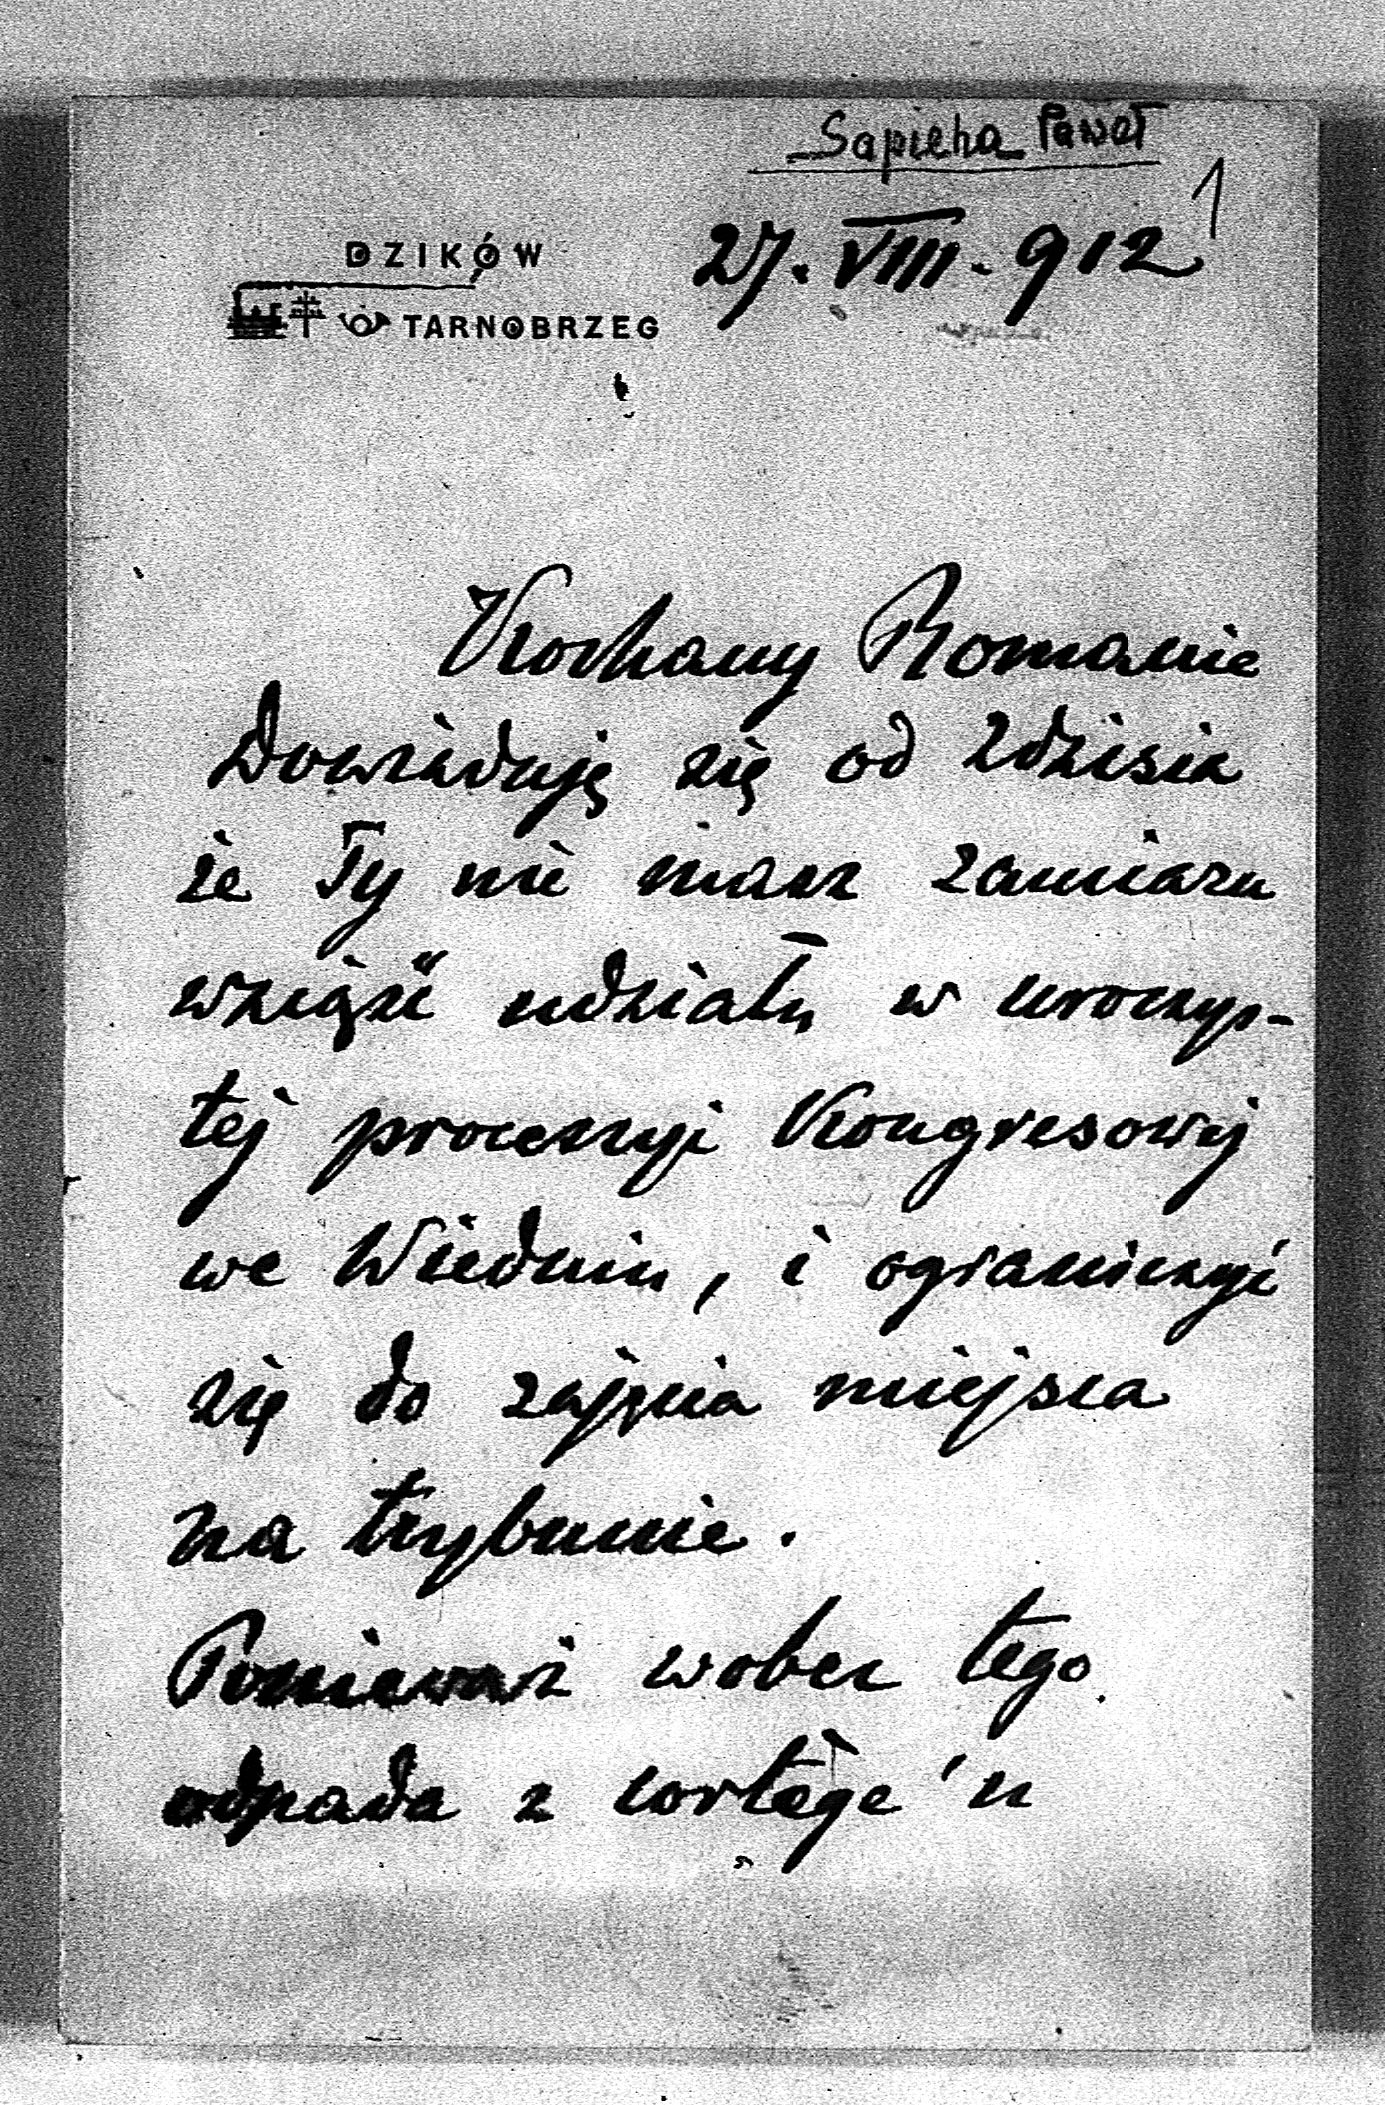 Sapieha Paweł
1
DZIKÓW
27. VIII. 912
TARNOBRZEG
Kochany Romanie
Dowiaduję się od Zdzisia
że Ty nie masz zamiaru
wziąść udziału w uroczys-
tej procesyi Kongresowej
we Wiedniu, i ograniczyć
się do zajęcia miejsca
na trybunie.
Ponieważ wobec tego
odpada z cortège'u